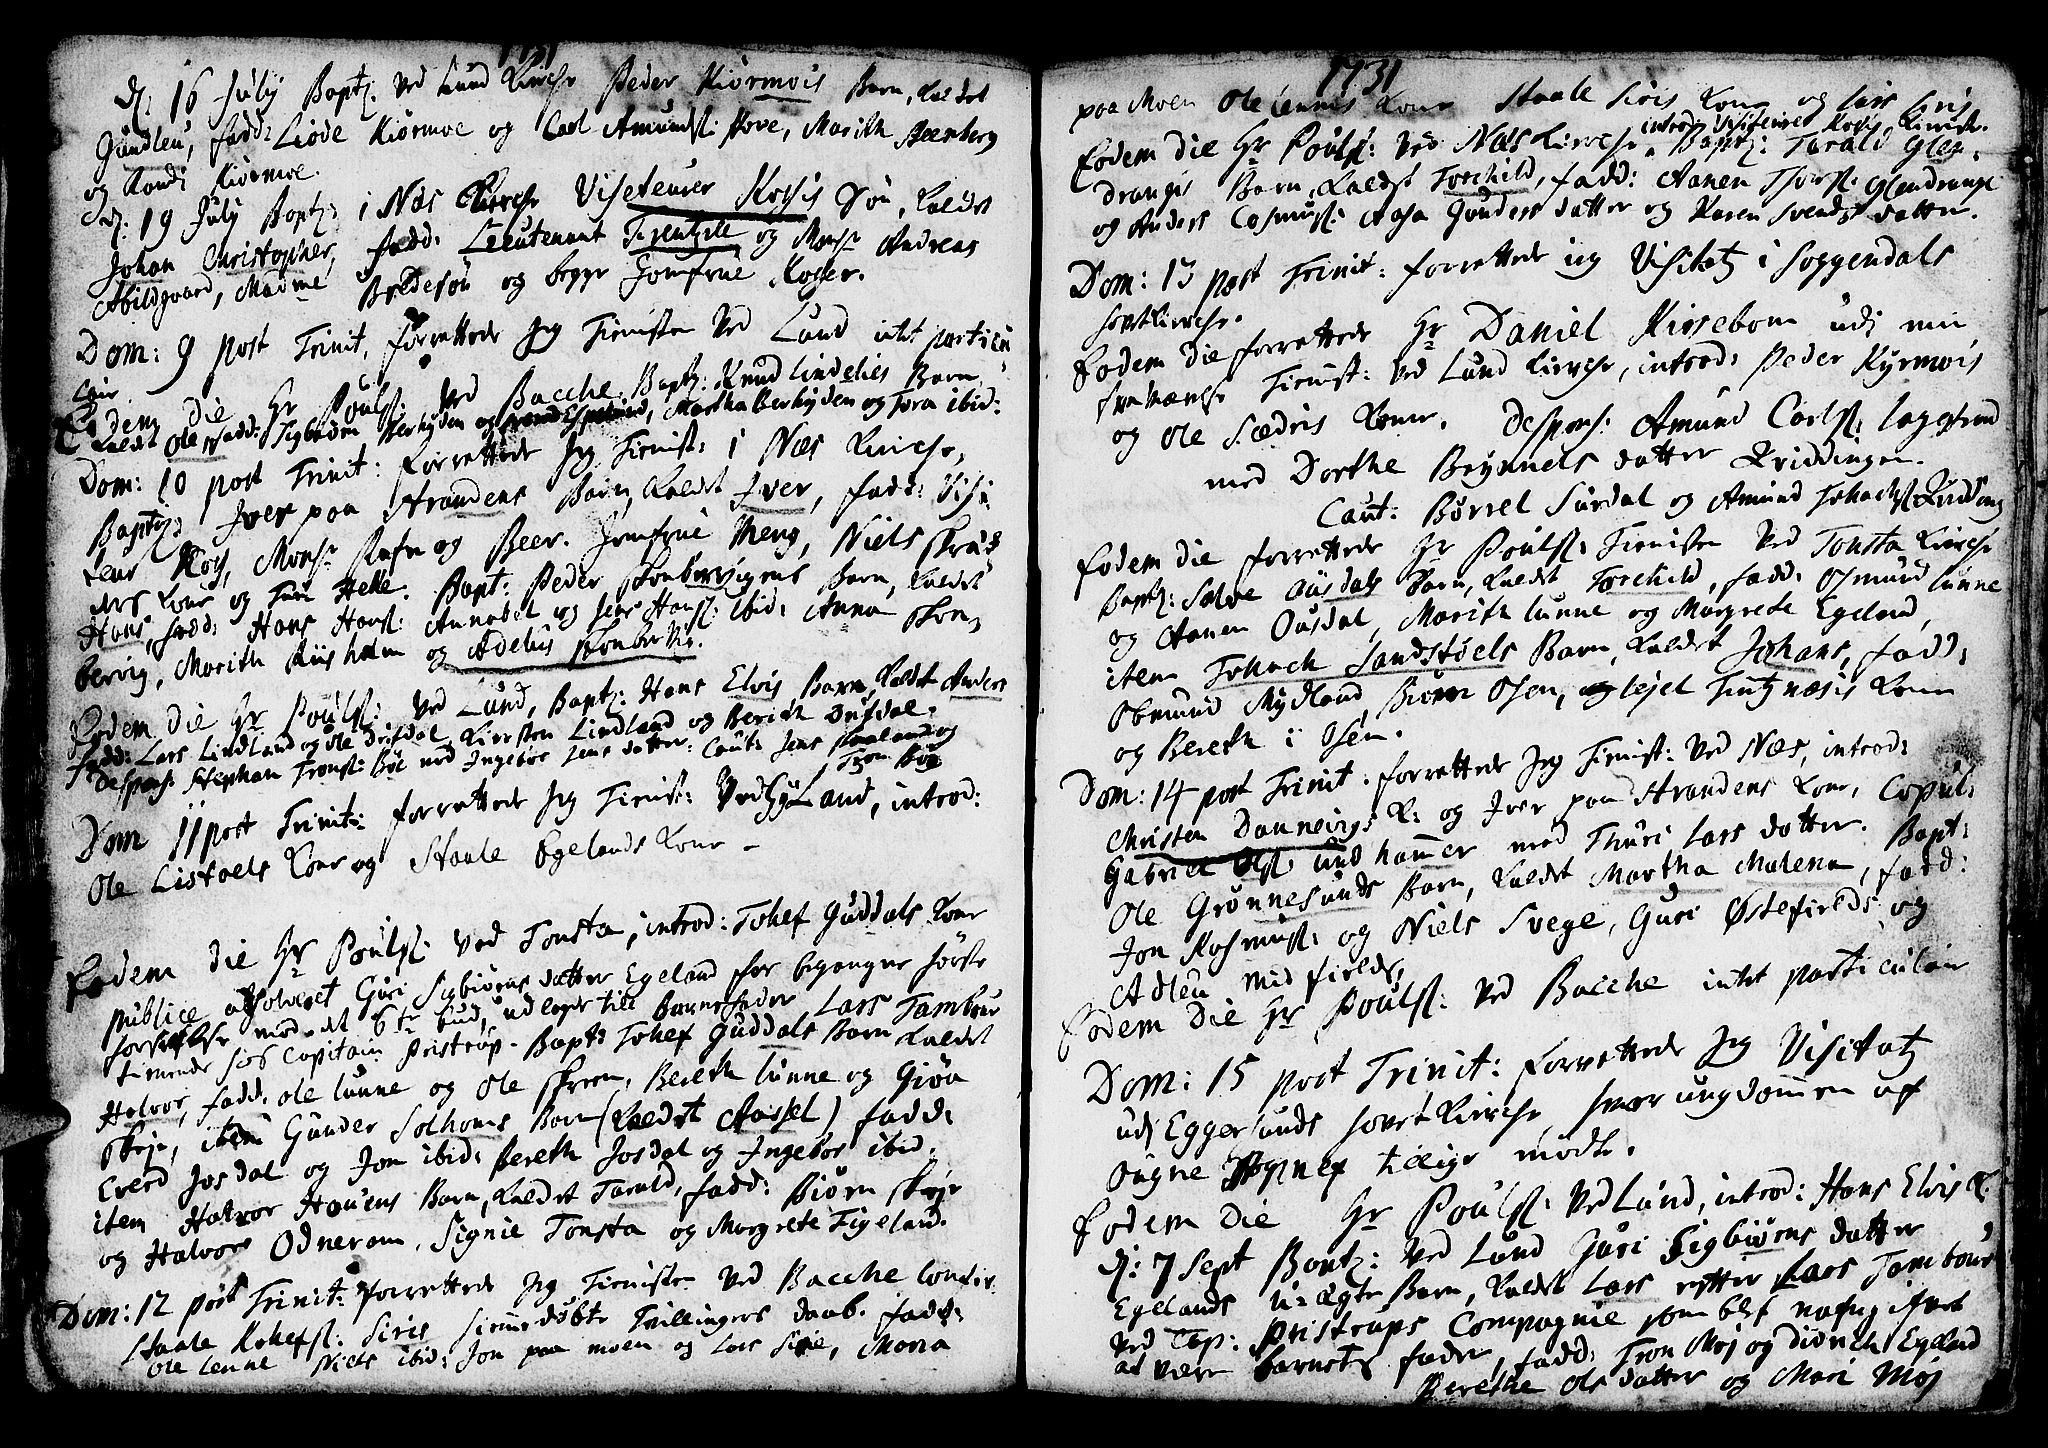 1731
d: 16 July Baptz: ved Lund Kirche Peder Kiørmois Barn, kaldet
Gundleu, fadd: Liøde Kiørmoe og Carl Amundsl: Hove, Marith Steenberg
og Randi Kiørmoe.
d: 19 July Baptz: i Næs Kirche Visiteuer Koچis Søn, kaldet
Johan Christopher, fadd: Lieutenant Frentzele og Monsr Andreas
Abildgaard, Madme Bredesøn og begge Jomfrue Koyer.
Dom: 9 post Trinit, forrettede Jeg Tienisten ved Lund intet particu
lair
Eodem die Hr Poulsl: ved Bacche, Baptz: Knud Lindelies Barn,
kaldet Ole fadd: Sigbiøren Berhyden og Espeland, Martha Berhyden og Tora ibid:
Dom: 10 post Trinit: forrettede Jeg Tienist: i Næs Kirche,
Baptz: Iver paa Strandens Barn, kaldet Iver, fadd: Visi
teur Koys, Monsr Rafn og Beer. Jomfrue Meng, Niels Skræd
ders kone og Siri Helle. Bapt: Peder Stenbervigens Barn, kaldet
Hans, fadd: Hans Hansl: Annabel og Jens Hansl: ibid: Anna Sten,
bervig, Marith Riisholm og Adelus Stenbervig.
Eodem die Hr Poulsl: ved Lund, Baptz: Hans Elvis Barn, kaldet Anders
fadd: Lars Lindland og Ole Drifdal, Kirsten Lindland og Berith Drifdal.
Despons: Stephan Tronsl: Bøe med Ingebor Jens datter: Caut: Jens Skaaland og
Tron Bøe
Dom 11 post Trinit: forrettede Jeg Tienist: Ved Gyland, introd:
Ole Listoels Kone og Staale Egelands Kone -
Eodem die Hr Poulsl: ved Tonsta, introd: Tohef Guddals kone
publice absolveret Guri Sigbiørens datter Egeland for begangne første
forseelse mod det 6te bud, udlagde till Barnefader Lars Tambour
tienende hos Capitain Pristrup. Bapt: Tohef Guddals Barn kaldet
Halvor, fadd: Ole Lunne og Ole Skreen, Bereth Lunne og Giøa
Skeje, item Gunder Solhoms Barn (kaldet Aassel) fadd:
Everd Josdal og Jon ibid: Bereth Josdal og Ingebor ibid:
item Halvor Houens Barn, kaldet Tarald, fadd: Biørn Skeje
og Halvor Odneram, Signie Tonsta og Margrete Figeland.
Dom: 12 post Trinit: forrettede Jeg Tieniste ved Bacche Confir.
Staale Rohefsl: Siris hiemedøbte Tvillingers daab. fadd:
Ole Lenne Niels ibid: Jon paa Moen og Lars Sirie, Maria
1731
paa Moen Ole Lennes kone Staale Siris kone og Lars Siris
Eodem die Hr Poulsl: ved Næs Kirche, introd: Visiteuer Koyis Kirche. Baptz: Tarald Glen,
drangis Barn, kaldet Torchild, fadd: Aanen Thorsl: Glendrange
og Anders Casmusl: Aasa Gunders datter og Karen Svends datter.
Dom: 13 post Trinit: forrettede jeg Visitatz i Soggendals
hovetkirche.
Eodem die forrettede Hr Daniel Kirsebom udj min
fraværelse Tienist: ved Lund Kirche, introd: Peder Kyrmois
og Ole Sædris kone. Despons: Amund Carlsl: Lagestrand
med Dorthe Brynnels datter Kriddingen.
Caut: Børrel Surdal og Amund Tohachsl: Rudding
Eodem die forrettede Hr Poulsl: Tienisten ved Tonsta Kirche
Baptz: Salve Ousdals Barn, kaldet Torchild, fadd: Osmund Lunne
og Aanen Ousdal, Marith Lunne og Margrete Egeland,
item Tohach Sandstøels Barn, kaldet Johans, fadd:
Obmund Mydland, Biørn Osen, og Lejel Tintznæsis kone
og Bereth i Osen.
Dom: 14 post Trinit: forrettede Jeg Tienist: ved Næs, introd:
Christen Dannevigs K: og Iver paa Strandens kone, Copul:
Gabriel Olsl: Lundhammer med Thuri Lars datter. Bapt:
Ole Grønnesunds Barn, kaldet Martha Malena, fadd:
Jon Rasmusl: og Niels Svege, Guri Østefields og
Adleu Midfields,
Eodem die Hr Poulsl: ved Bacche intet particulair
Dom: 15 post Trinit: forrettede Jeg Visitatz
udj Eggersunds hovetkirche, hvor ungdommen af
Ougne Sognef tillige mødte.
Eodem die Hr Poulsl: ved Lund, introd: Hans Elvis K:
d: 7 Sept Baptz: ved Lund Guri Sigbiørens datter
Egelands Uægte Barn, kaldet Lars rytter Lars Tambour
ved Cap: Pristrups Compagnie som blef nafngifvet
at være barnets fader, fadd: Tron Moj og Didrich Egeland
Berethe Ols datter og Mari Moj